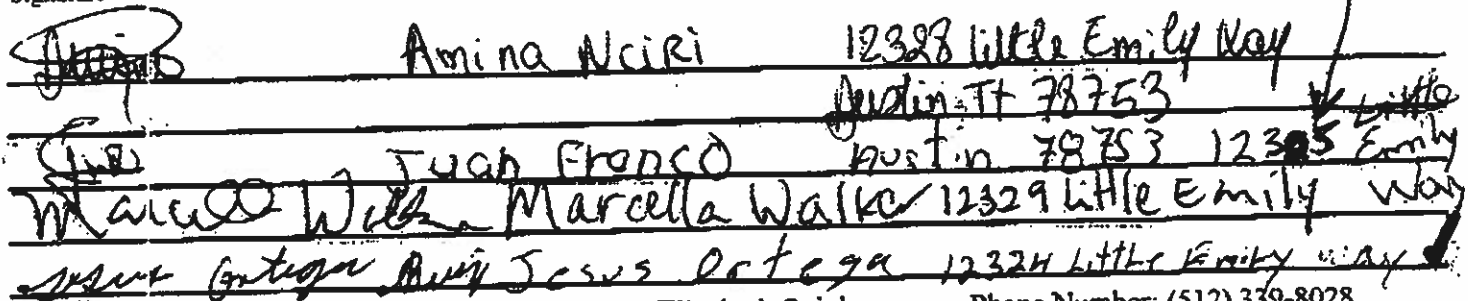 Amina Nciri 12328 Little Emily Way
Austin Tt 78753
Juan Franco Austin 78753 Little Emily
Marcella Walker 12329 Little Emily Way
Jesus Ortega Jesus Ortega 12324 Little Emily Way
Phone Number: (512) 339-8028